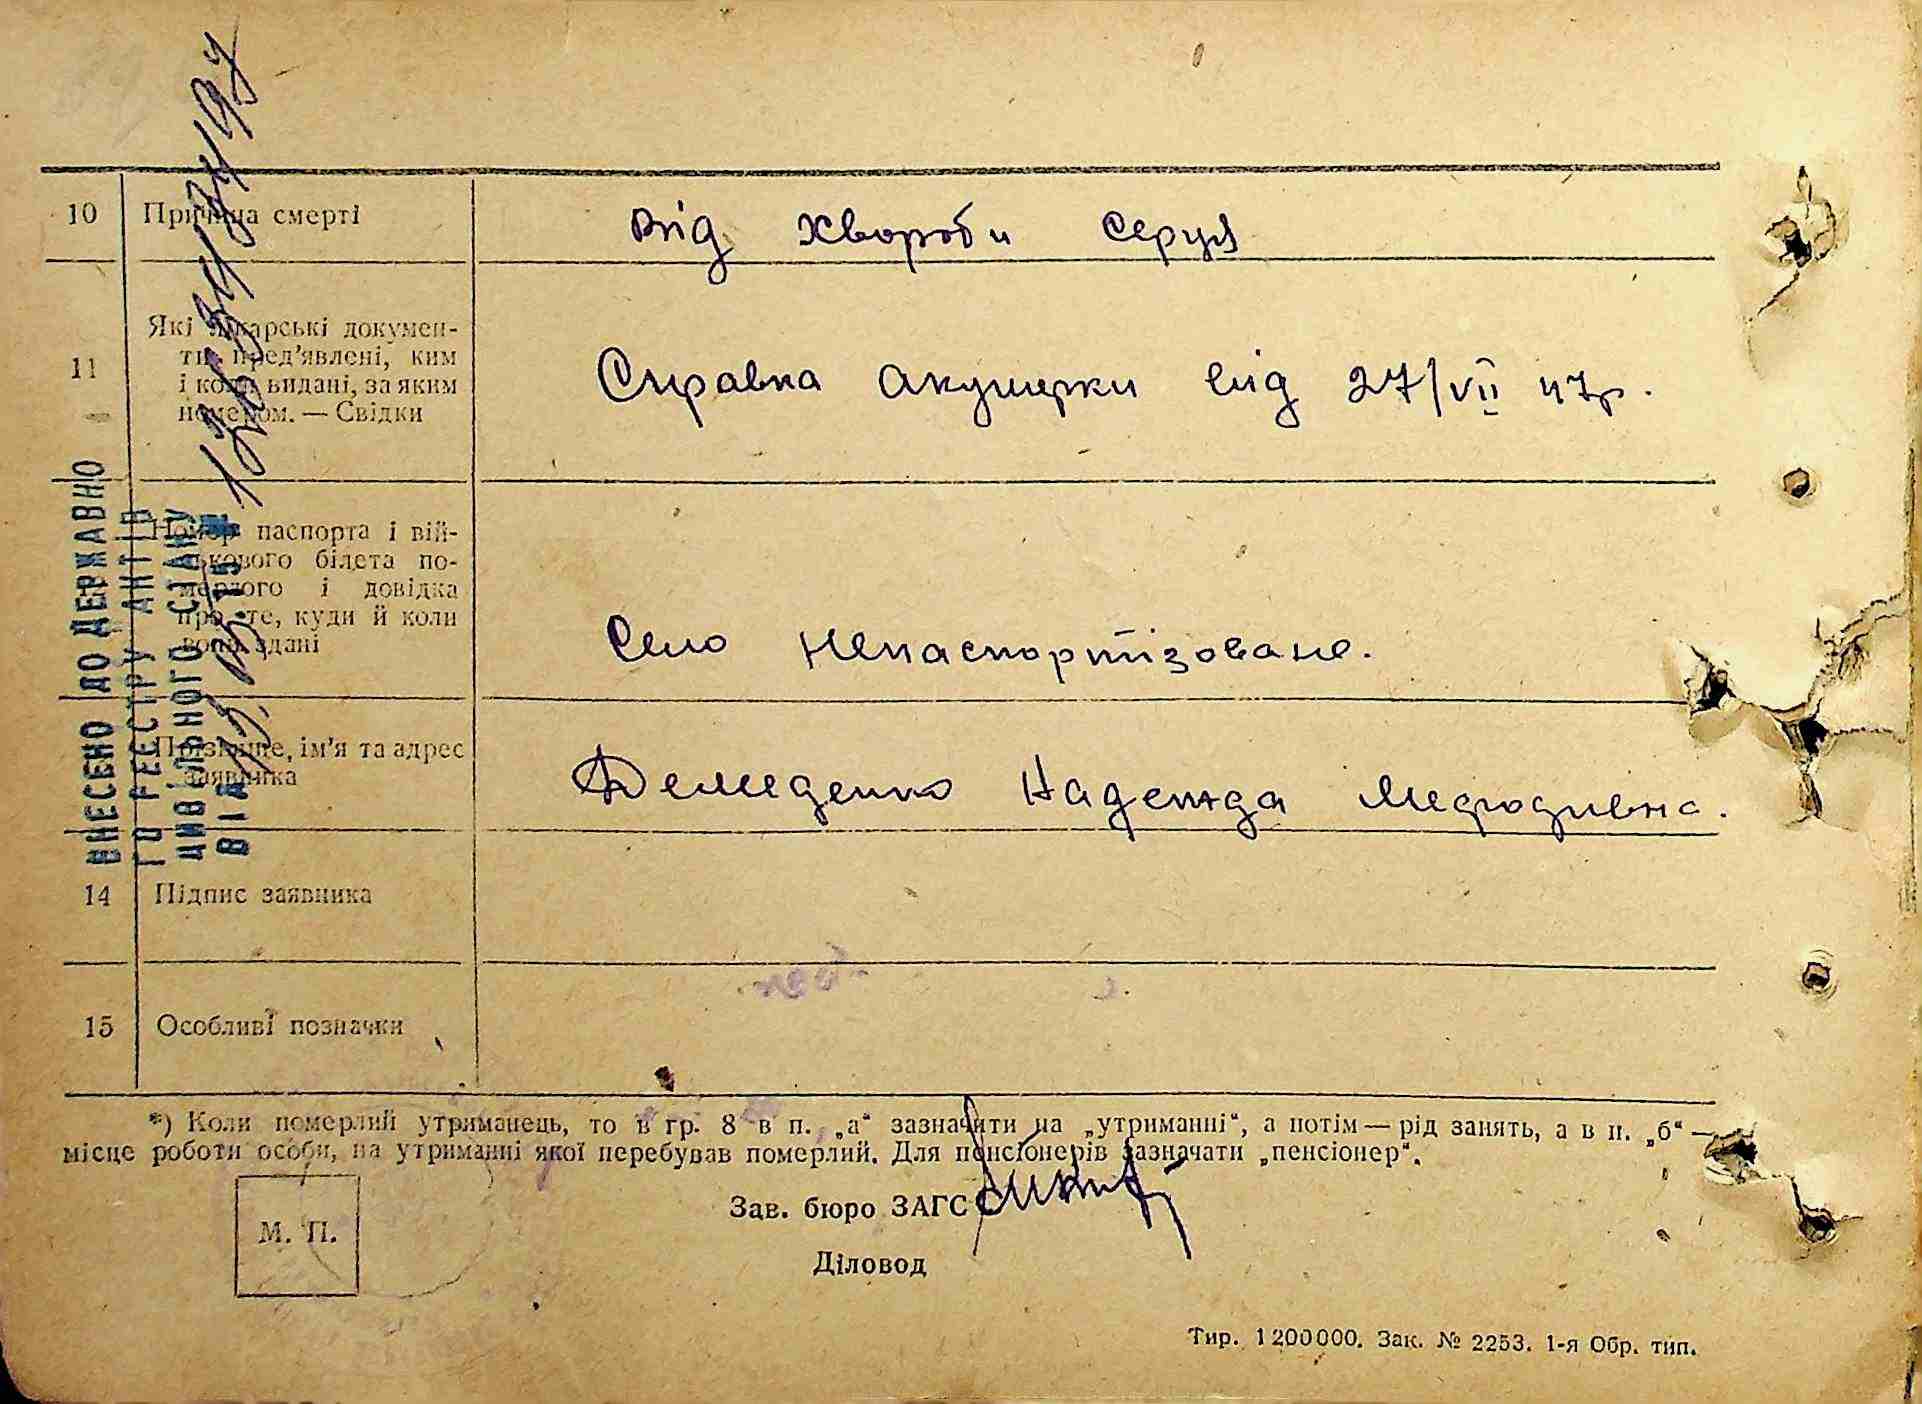 10 Причина смерті
Від хвороби серця
11 Які лікарські докумен-
ти пред'явлені, ким
і коли видані, за яким
номером. — Свідки
Справка акушерки від 27/VII 47р.
Номер паспорта і вій-
ськового білета по-
мерлого і довідка
про те, куди й коли
вони здані
Село непаспортізоване.
Прізвище, ім'я та адрес
заявника
Демиденко Надежда Мефодивна.
14 Підпис заявника
15 Особливі позначки
*) Коли померлий утриманець, то в гр. 8 в п. „а“ зазначити на „утриманні“, а потім — рід занять, а в п. „б“ —
місце роботи особи, на утриманні якої перебував померлий. Для пенсіонерів зазначати „пенсіонер“.
М. П.
Зав. бюро ЗАГС
Діловод
Тир. 1200000. Зак. № 2253. 1-я Обр. тип.
ВНЕСЕНО ДО ДЕРЖАВНО
ГО РЕЄСТРУ АКТІВ
ЦИВІЛЬНОГО СТАНУ
ВІД